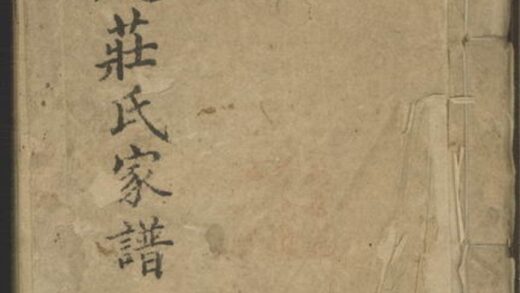 莊氏家譜